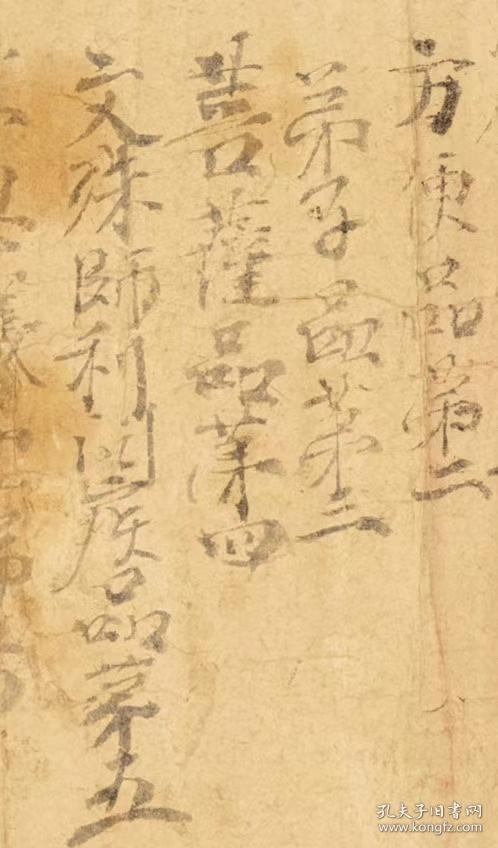 方便品第二
弟子品第三
菩薩品第四
文殊師利問疾品第五
孔夫子旧书网
www.kongfz.com